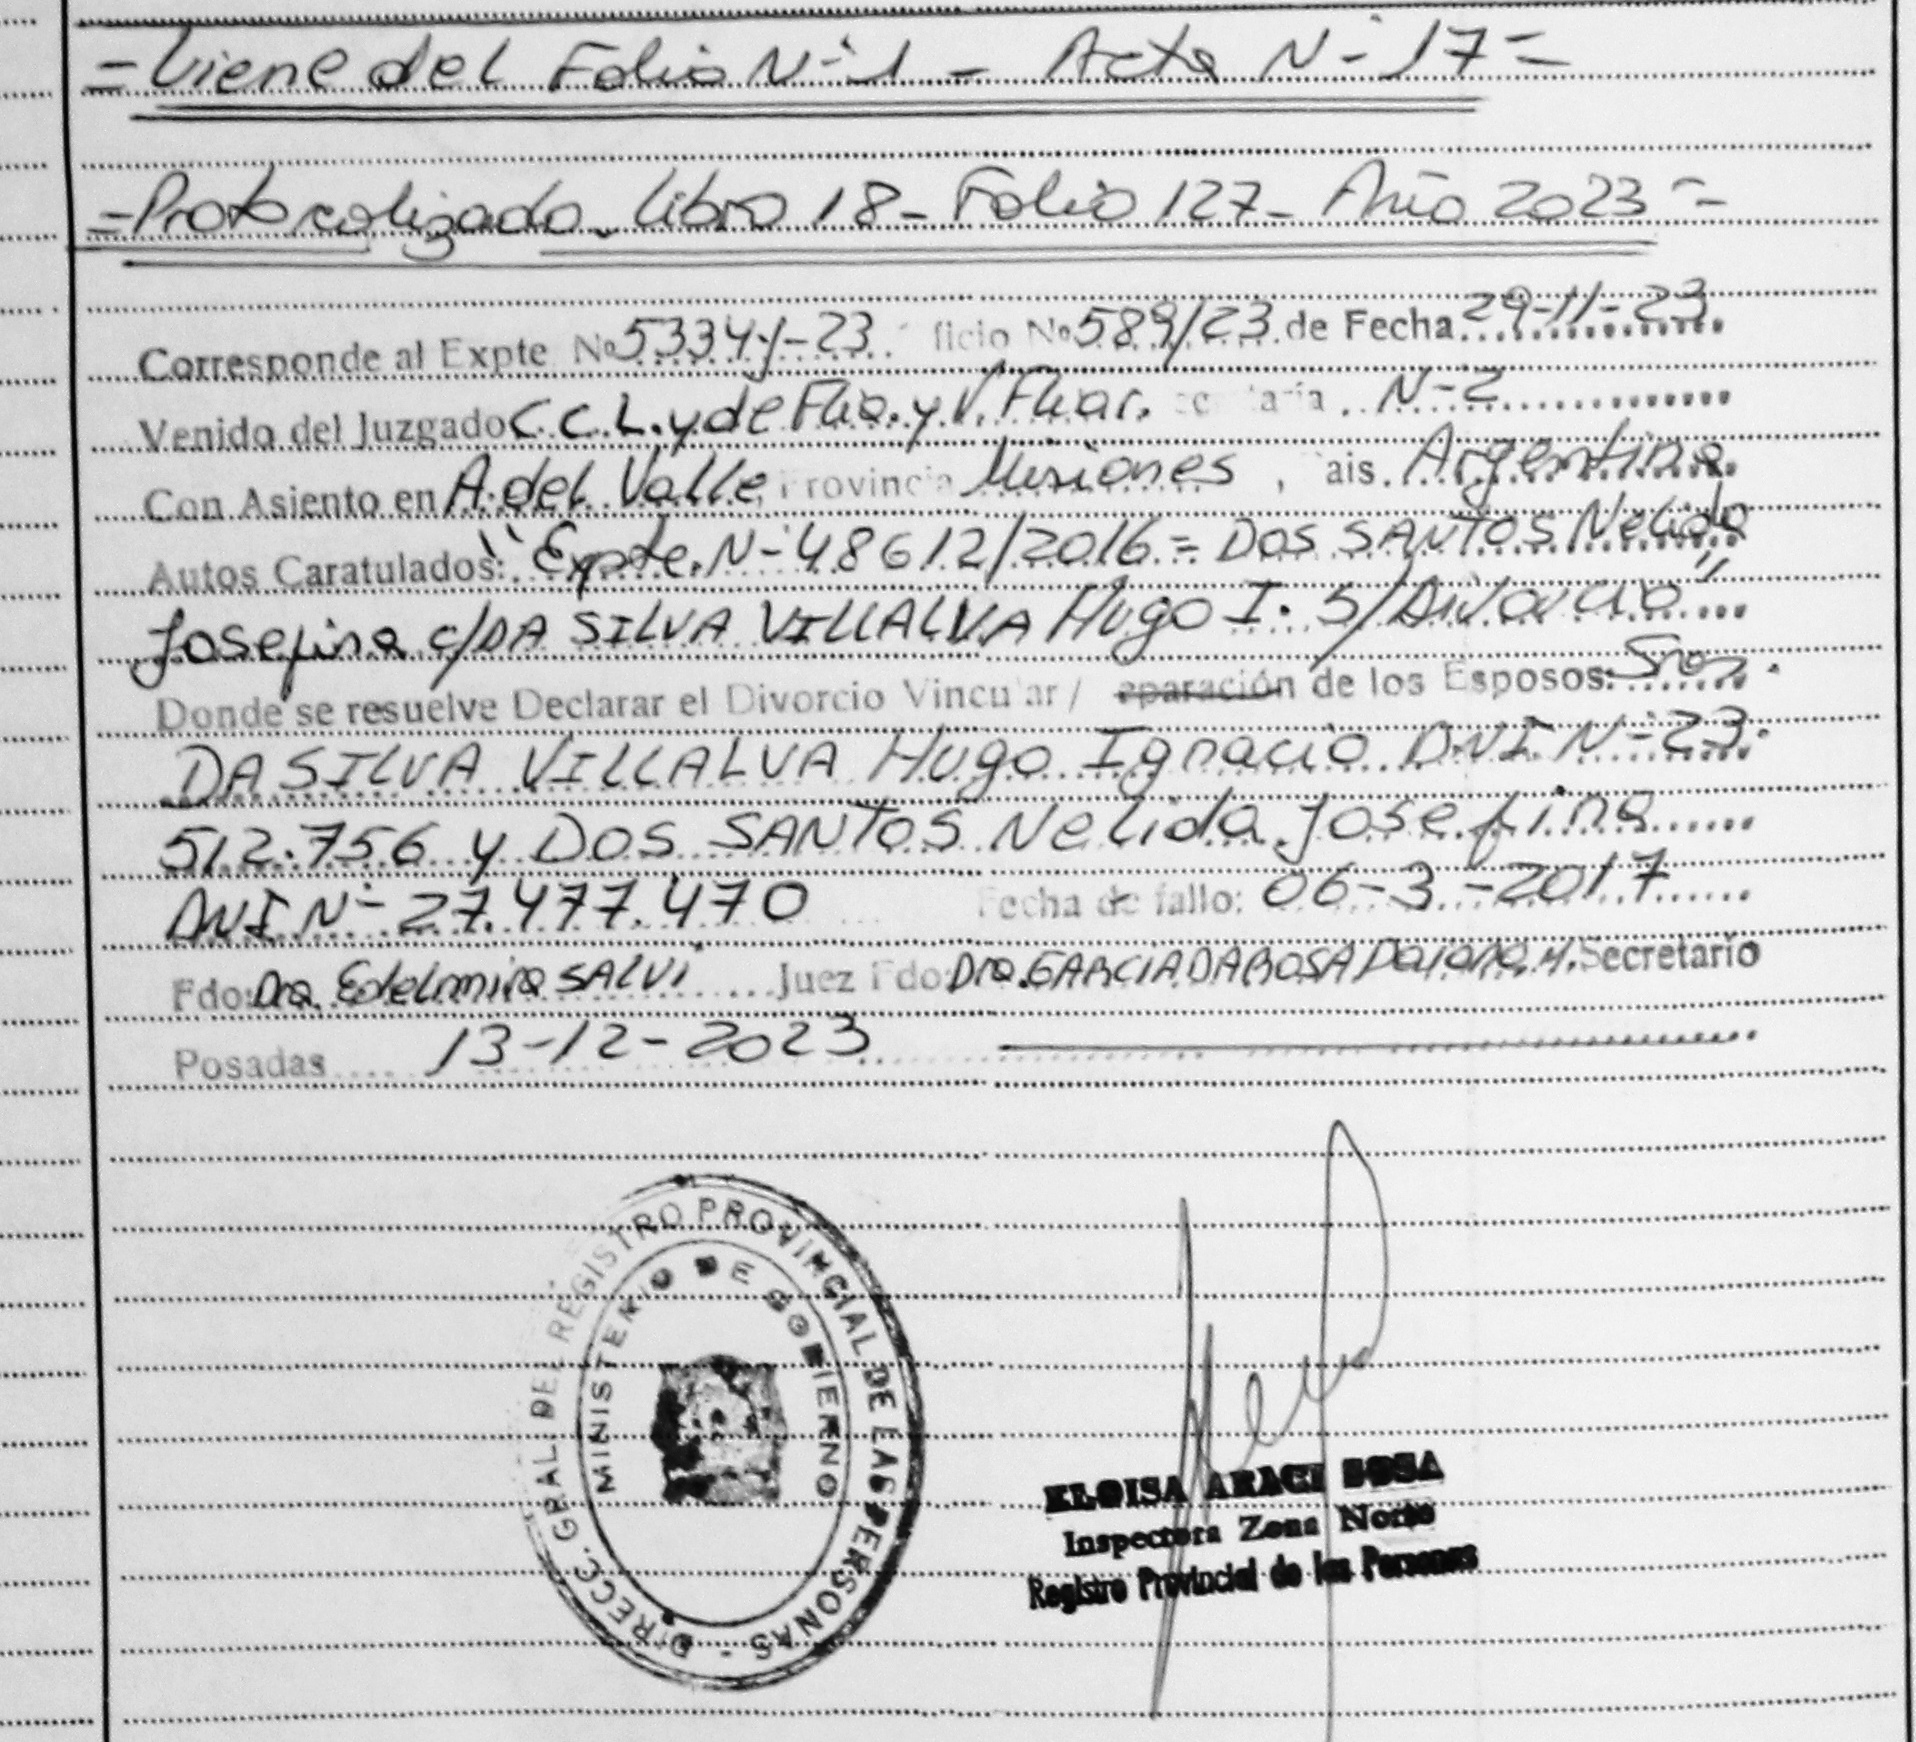 =Viene del Folio N-1 - Acta N-17=
=Protocolizado - Libro 18 - Folio 127 - Año 2023=
Corresponde al Expte Nº 5334-J-23 ficio Nº 589/23 de Fecha 29-11-23
Venido del Juzgado C.C.L. y de Flia. y V. Fliar. N-2
Con Asiento en A. del Valle Provincia Misiones, ais Argentina
Autos Caratulados: "Expte. N-48612/2016 = DOS SANTOS Nelida
Josefina c/DA SILVA VILLALVA Hugo I. S/Divorcio"
Donde se resuelve Declarar el Divorcio Vincular / eparación de los Esposos: Sres.
DA SILVA VILLALVA Hugo Ignacio DNI N-23.
512.756 y DOS SANTOS Nelida Josefina
DNI N-27.477.470 Fecha de fallo: 06-3-2017
Fdo: Dra. Edelmira SALVI Juez Fdo: Dra. GARCIA DA ROSA Daiana M. Secretario
Posadas 13-12-2023
DIRECC. GRAL. DEL REGISTRO PROVINCIAL DE LAS PERSONAS -
MINISTERIO DE GOBIERNO
ELOISA ARACI SOSA
Inspectora Zona Norte
Registro Provincial de las Personas